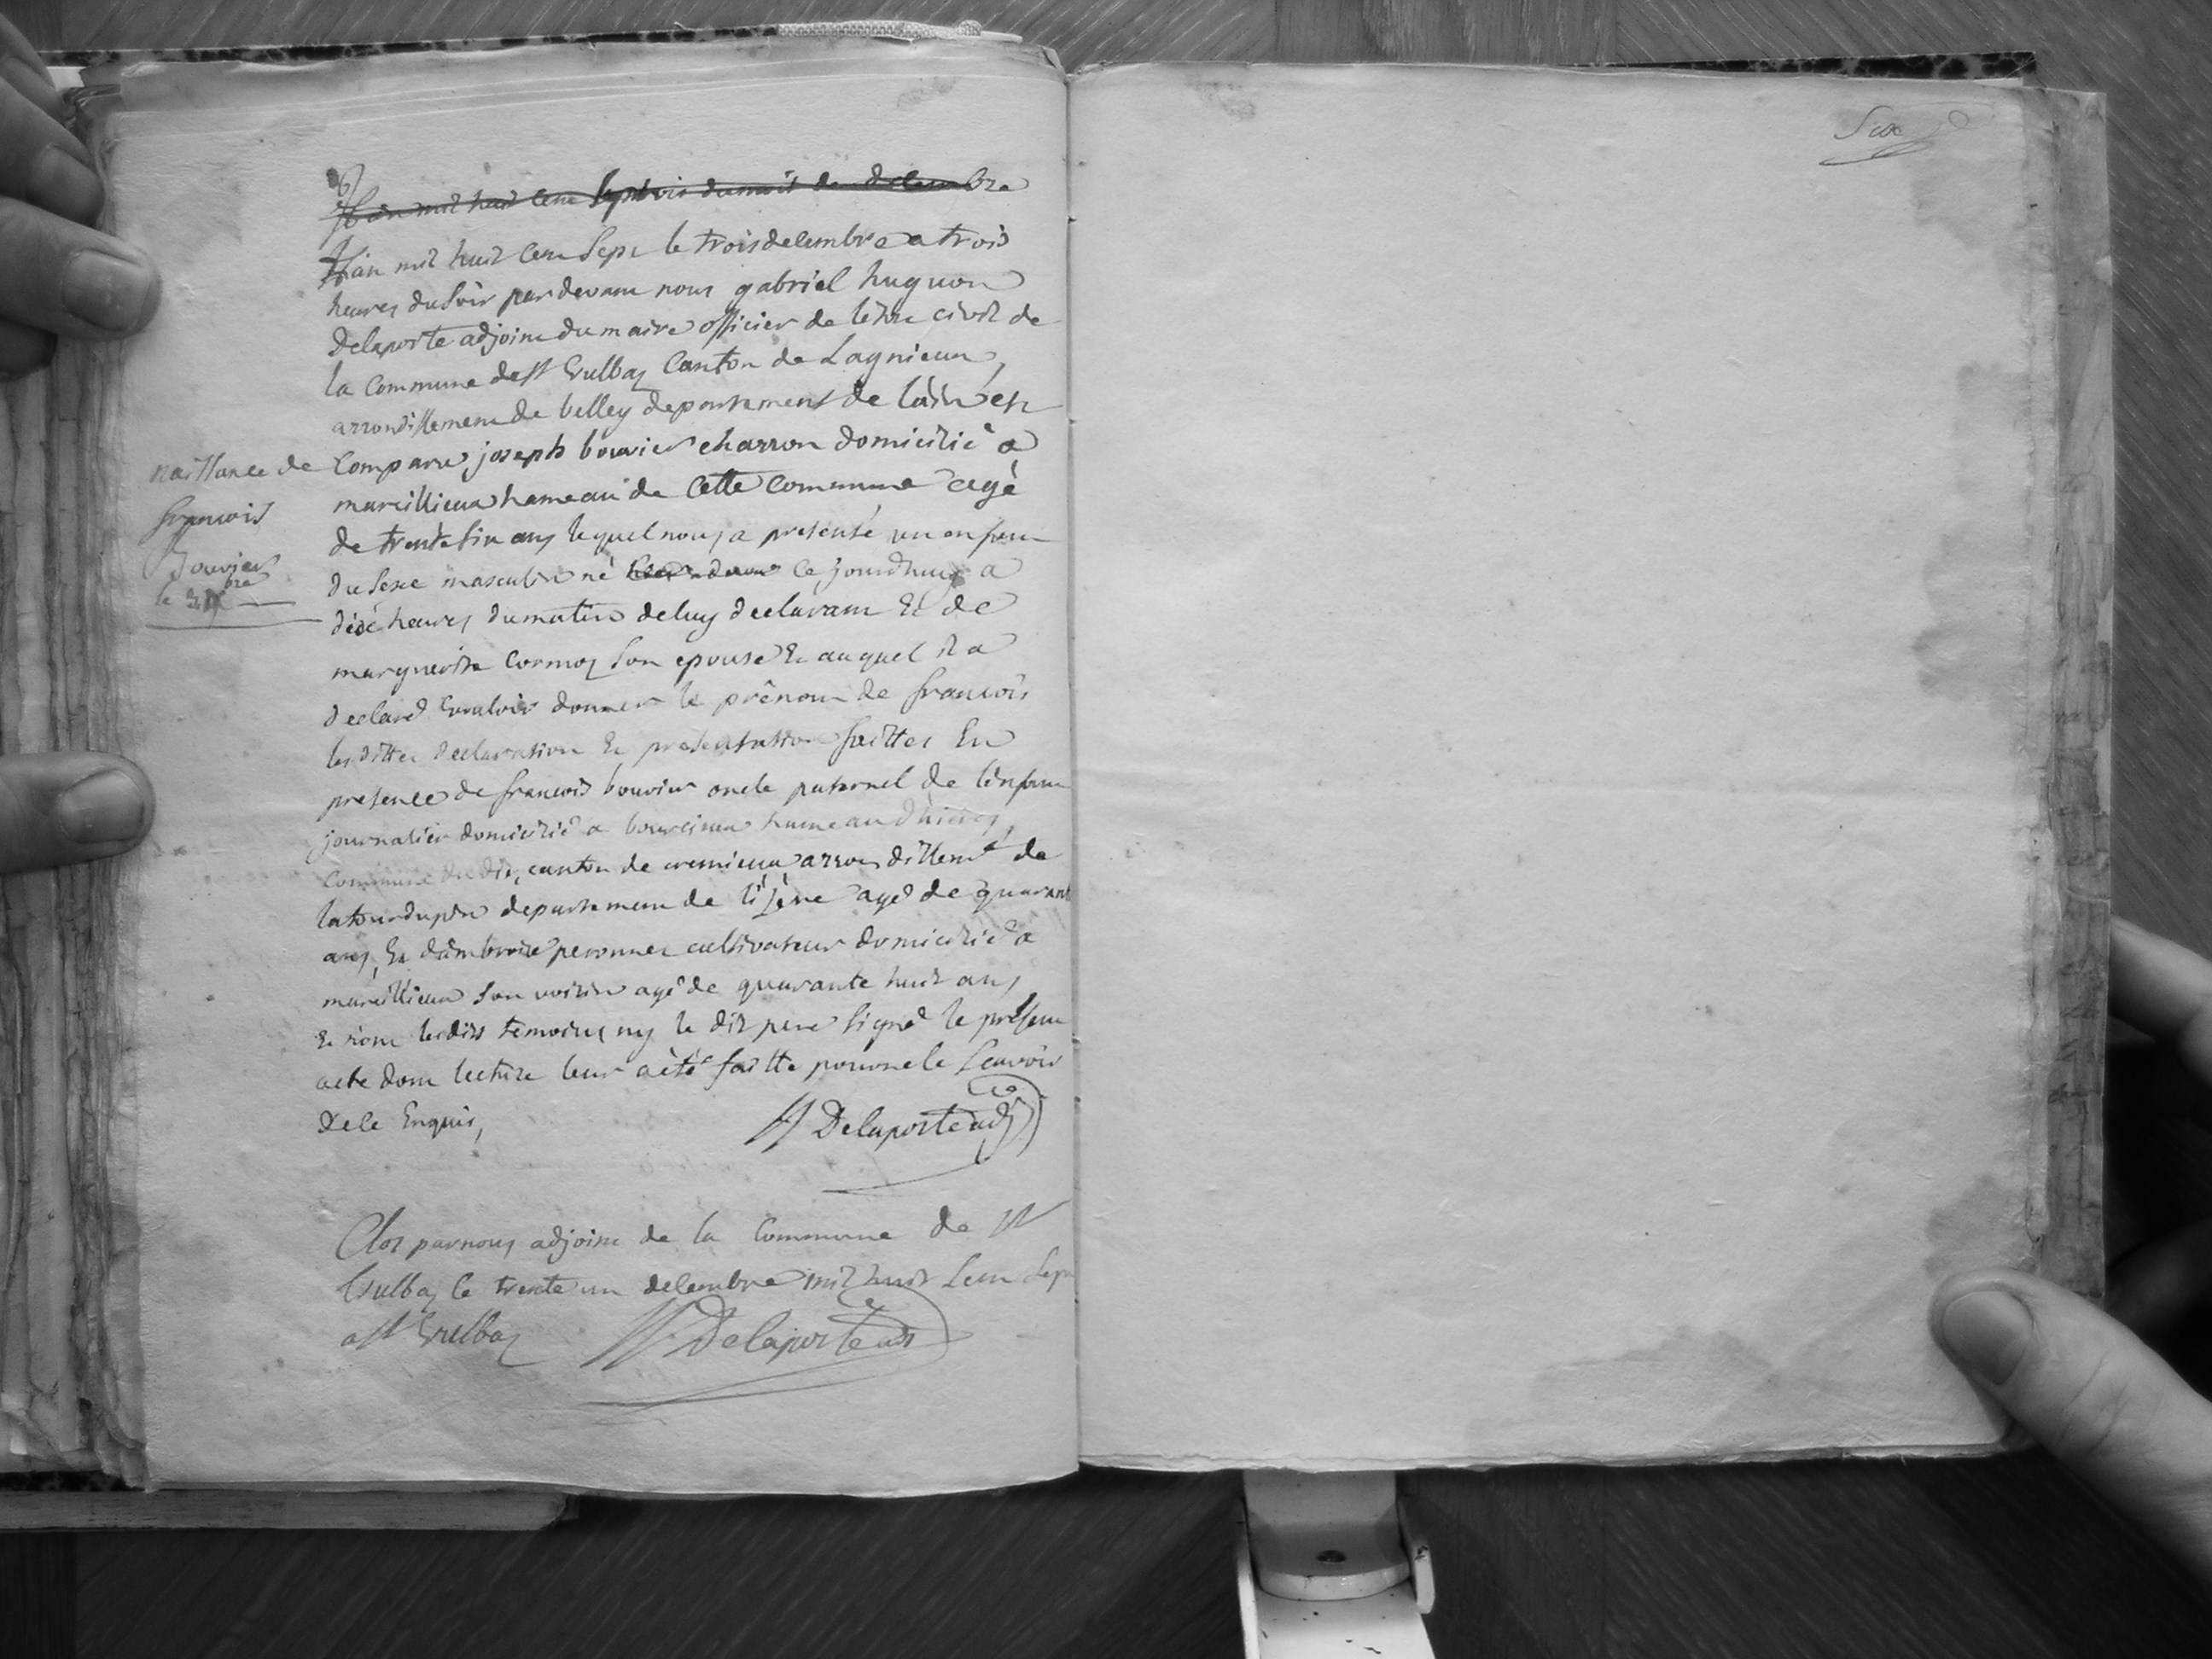 L'an mil huit cent sept le trois decembre a trois
heures du soir pardevant nous gabriel huguon
Delaporte adjoint du maire officier de letat civil de
la Commune de st Vulbas Canton de Lagnieux,
arrondissement de belley departement de lain est
naissance de
francois
Bouvier
le 3 Xbre
Comparu joseph bouvier charron domicilié a
marcillieux hameau de Cette Commune agé
de trente six ans lequel nous a presenté un enfant
du sexe masculin né ce jourdhuy a
dixe heures du matin de luy declarant Et de
marguerite Cormoz son epouse Et auquel il a
declaré vouloir donner le prénom de francois
les dittes declaration Et presentation faittes En
presence de francois bouvier oncle paternel de lenfant
journalier domicilié a bourcieux hameau d'hières,
commune du dit, canton de cremieux arrondissemt de
latourdupin departement de l'isère agé de quarante
ans, Et dambroise peronnet cultivateur domicilié a
marcillieux son voisin agé de quarante huit ans
Et n'ont lesdits temoins ny le dit pere signé le present
acte dont lecture leur a été faitte pour ne le scavoir
de ce Enquis,
Delaporte adj
Clos par nous adjoint de la Commune de st
Vulbas le trente un decembre mil huit cent sept
a st Vulbas Delaporte adj
Six